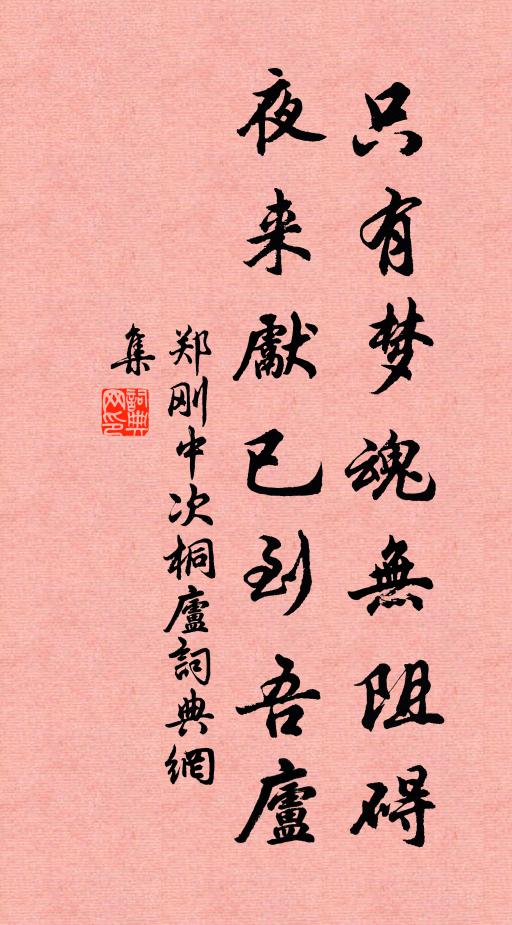 只有梦魂無阻碍
夜来獻已到吾廬
郑刚中次桐廬詞典網
集
詞典
网印